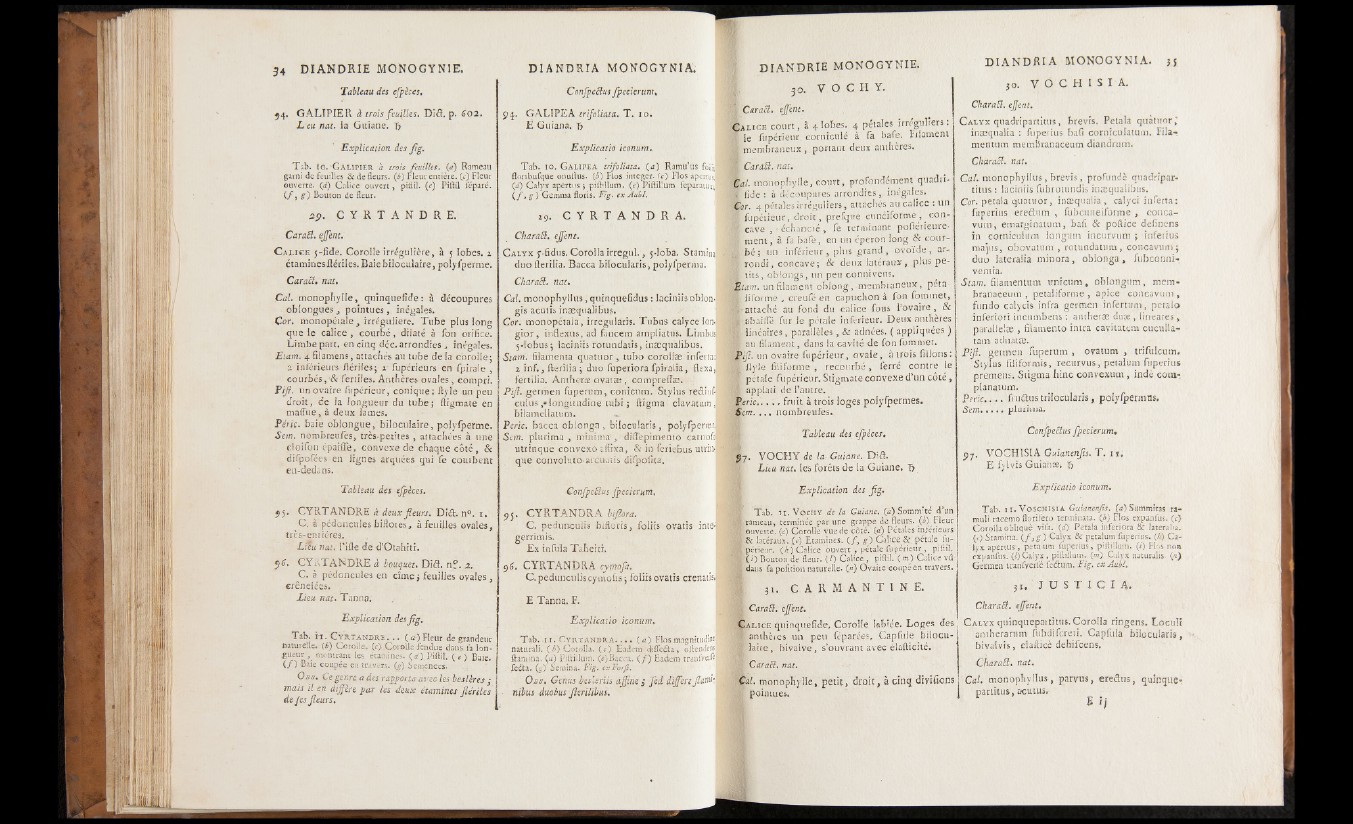 34 DIANDRIE MONOGYNIE.
Tableau des eſpèces.
94. GALIPIER à trois feuilles. Dict. p. 602.
Leu nat. la Guiane. ♄
Explication des fig.
Tab. 10. GALIPIER à trois feuilles. (a) Rameau
garni de feuilles & de fleurs. (b) Fleur entière. (c) Fleur
ouverte. (d) Calice ouvert, piſtil. (e) Piſtil ſéparé.
(f, g) Bouton de fleur.
29. CYRTANDRE.
Caract. eſſent.
CALICE 5-fide. Corolle irrégulière, à 5 lobes. 2
étamines ſtériles. Baie biloculaire, polyſperme.
Caract. nat.
Cal. monophylle, quinquefide: à découpures
oblongues, pointues, inégales.
Cor. monopétale, irrégulière. Tube plus long
que le calice, courbé, dilaté à ſon orifice.
Limbe part. en cinq déc. arrondies, inégales.
Etam. 4 filamens, attachés au tube de la corolle;
2 inférieurs ſtériles; 2 ſupérieurs en ſpirale,
courbés, & fertiles. Anthères ovales, compri.
Piſt. un ovaire ſupérieur, conique; ſtyle un peu
droit, de la longueur du tube; ſtigmate en
maſſue, à deux lames.
Péric. baie oblongue, biloculaire, polyſperme.
Sem. nombreuſes, très-petites, attachées à une
cloiſon épaiſſe, convexe de chaque côté, &
diſpoſées en lignes arquées qui ſe courbent
en-dedans.
Tableau des eſpèces.
95. CYRTANDRE à deux fleurs. Dict. n°. 1.
C. à péduncules biflores, à feuilles ovales,
très-entières.
Lieu nat. l'iſle de d'Otahiti.
96. CYRTANDRE à bouquet. Dict. n°. 2.
C. à péduncules en cime; feuilles ovales,
crénelées.
Lieu nat. Tanna.
Explication des fig.
Tab. 11. CYRTANDRE... (a) Fleur de grandeur
naturelle. (b) Corolle. (c) Corolle fendue dans ſa lon-
gueur, montrant les étamines. (d) Piſtil. (e) Baie.
(f) Baie coupée en travers. (g) Semences.
Obs. Ce genre a des rapports avec les beslères;
mais il en diffère par les deux étamines ſtériles
de ſes fleurs.
DIANDRIA MONOGYNIA.
Conſpectus ſpecierum.
94. GALIPEA trifoliata. T. 10.
E Guiana. ♄
Explicatio iconum.
Tab. 10. GALIPEA trifoliata. (a) Ramulus
floribuſque onuſtus. (b) Flos integer. (c) Flos
(d) Calyx apertus; piſtillum. (e) Piſtillum
(f, g) Gemma floris. Fig. ex Aubl.
29. CYRTANDRA.
Charact. eſſent.
CALYX 5-fidus. Corolla irregul., 5-loba. Stamina
duo ſterilia. Bacca bilocularis, polyſperma.
Charact. nat.
Cal. monophyllus, quinquefidus: laciniis oblon-
gis acutis inæqualibus.
Cor. monopetala, irregularis. Tubus calyce lon-
gior, inflexus, ad faucem ampliatus. Limbus
5-lobus; laciniis rotundatis, inæqualibus.
Stam. filamenta quatuor, tubo corollæ inſerta:
2 inf., ſterilia; duo ſuperiora ſpiralia, flexa,
fertilia. Antheræ ovatæ, compreſſæ.
Piſt. germen ſuperum, conicum. Stylus rectiuſ-
culus, longitudine tubi; ſtigma clavatum,
bilamellatum.
Peric. bacca oblonga, bilocularis, polyſperma.
Sem. plurima, minima, diſſepimento carnoſo
utrinque convexo affixa, & in ſeriebus
que convoluto-arcuatis diſpoſita.
Conſpectus ſpecierum.
95. CYRTANDRA biflora.
C. pedunculis bifloris, foliis ovatis inte-
gerrimis.
Ex inſula Taheiti.
96. CYRTANDRA cymoſa.
C. pedunctilis cymoſis; foliis ovatis crenatis.
E Tanna. F.
Explicatio iconum.
Tab. 11. CYRTANDRA.... (a) Flos
naturali. (b) Corolla. (c) Eadem diſſecta,
ſtamina. (d) Piſtillum. (e) Bacca. (f) Eadem
ſecta. (g) Semina. Fig. ex Forſt.
Obs. Genus besleriis affine; ſed differt ſtami-
nibus duobus ſterilibus.
DIANDRIE MONOGYNIE.
30. VOCHY.
Caract. eſſent.
CALICE court, à 4 lobes. 4 pétales irréguliers:
le ſupérieur corniculé à ſa baſe. Filament
membraneux, portant deux anthères.
Caract. nat.
Cal. monophylle, court, profondément quadri-
fide: à découpures arrondies, inégales.
Cor. 4 pétales irréguliers, attachés au calice: un
ſupérieur, droit, preſque cunéiforme, con-
cave, échancré, ſe terminant poſtérieure-
ment, à ſa baſe, en un éperon long & cour-
bé; un inférieur, plus grand, ovoïde, ar-
rondi, concave; & deux latéraux, plus pe-
tits, oblongs, un peu connivens.
Etam. un filament oblong, membraneux, péta-
liforme, creuſé en capuchon à ſon ſommet,
attaché au fond du calice ſous l'ovaire, &
abaiſſé ſur le pétale inférieur. Deux anthères
linéaires, parallèles, & adnées. (appliquées)
au filament, dans la cavité de ſon ſommet.
Piſt. un ovaire ſupérieur, ovale, à trois ſillons:
ſtyle filiforme, recourbé, ſerré contre le
pétale ſupérieur. Stigmate convexe d'un côté,
applati de l'autre.
Peric..... fruit à trois loges polyſpermes.
Sem.... nombreuſes.
Tableau des eſpèces.
97. VOCHY de la Guiane. Dict.
Lieu nat. les forêts de la Guiane. ♄
Explication des fig.
Tab. 11. VOCHY de la Guiane. (a) Sommité d'un
rameau, terminée par une grappe de fleurs. (b) Fleur
ouverte. (c) Corolle vue de côté. (d) Pétales inférieurs
& latéraux. (e) Etamines. (f, g) Calice & pétale ſu-
périeur. (h) Calice ouvert, pétale ſupérieur, piſtil.
(i) Bouton de fleur. (l) Calice, piſtil. (m) Calice vu
dans ſa poſition naturelle. (n) Ovaire coupé en travers.
31. CARMANTINE.
Caract. eſſent.
CALICE quinquefide. Corolle labiée. Loges des
anthères un peu ſéparées. Capſule bilocu-
laire, bivalve, s'ouvrant avec élaſticité.
Caract. nat.
Cal. monophylle, petit, droit, à cinq diviſions
pointues.
DIANDRIA MONOGYNIA. 35
30. VOCHISIA.
Charact. eſſent.
CALYX quadripartitus, brevis. Petala quatuor,
inæqualia: ſuperius baſi corniculatum. Fila-
mentum membranaceum diandrum.
Charact. nat.
Cal. monophyllus, brevis, profundè quadripar-
titus: laciniis ſubrotundis inæqualibus.
Cor. petala quatuor, inæqualia, calyci inſerta:
ſuperius erectum, ſubcuneiforme, conca-
vum, emarginatum, baſi & poſtice deſinens
in corniculum longum incurvum; inferius
majus, obovatum, rotundatum, concavum;
duo lateralia minora, oblonga, ſubconni-
ventia.
Stam. filamentum unicum, oblongum, mem-
branaceum, petaliforme, apice concavum,
fundo calycis infra germen inſertum, petalo
inferiori incumbens: antheræ duæ, lineares,
parallelæ, filamento intra cavitatem cuculla-
tam adnatæ.
Piſt. germen ſuperum, ovatum, triſulcum.
Stylus filiformis, recurvus, petalum ſuperius
premens. Stigma hinc convexum, inde com-
planatum.
Peric.... fructus trilocularis, polyſpermus.
Sem..... plurima.
Conſpectus ſpecierum.
97. VOCHISIA Guianenſis. T. 11.
E ſylvis Guianæ. ♄
Explicatio iconum.
Tab. 11. VOSCHISIA Guianenſis. (a) Summitas ra-
muli racemo florifero terminati. (b) Flos expanſus. (c)
Corolla oblique viſa. (d) Petala inferiora & lateralia.
(e) Stamina. (f, g) Calyx & petalum ſuperius. (h) Ca-
lyx apertus, petalum ſuperius, piſtillum. (i) Flos non
expanſus. (l) Calyx, piſtillum. (m) Calyx naturalis. (n)
Germen tranſverſè ſectum. Fig. ex Aubl.
31. JUSTICIA.
Charact. eſſent.
CALYX quinquepartitus. Corolla ringens. Loculi
antherarum ſubdiſcreti. Capſula bilocularis,
bivalvis, elaſticè dehiſcens.
Charact. nat.
Cal. monophyllus, parvus, erectus, quinque-
partitus, acutus.
E ij